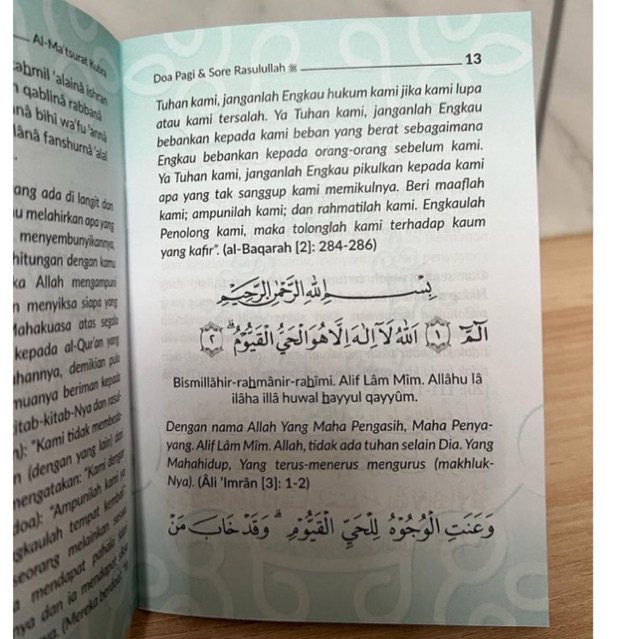 Al-Ma'tsurat Kubra
ahmil 'alainâ ishran
qablinâ rabbanâ
nâ bihî wa'fu 'annâ
lânâ fanshurnâ 'alal
ang ada di langit dan
u melahirkan apa yang
menyembunyikannya,
hitungan dengan kamu
ka Allah mengampuni
n menyiksa siapa yang
Mahakuasa atas segala
kepada al-Qur'an yang
hannya, demikian pula
muanya beriman kepada
itab-kitab-Nya dan rasul-
n): "Kami tidak membeda-
n (dengan yang lain) dan
mengatakan: "Kami dengar
doa): "Ampunilah kami ya
gkaulah tempat kembali".
seorang melainkan sesuai
a mendapat pahala
nya dan ia mendapat
(Mereka berdoa):
Doa Pagi & Sore Rasulullah ﷺ 13
Tuhan kami, janganlah Engkau hukum kami jika kami lupa
atau kami tersalah. Ya Tuhan kami, janganlah Engkau
bebankan kepada kami beban yang berat sebagaimana
Engkau bebankan kepada orang-orang sebelum kami.
Ya Tuhan kami, janganlah Engkau pikulkan kepada kami
apa yang tak sanggup kami memikulnya. Beri maaflah
kami; ampunilah kami; dan rahmatilah kami. Engkaulah
Penolong kami, maka tolonglah kami terhadap kaum
yang kafir". (al-Baqarah [2]: 284-286)
بِسْــــمِ اللهِ الرَّحْمٰنِ الرَّحِيْمِ
الٓمّٓ ۝١ اَللهُ لَآ اِلٰهَ اِلَّا هُوَ الْحَيُّ الْقَيُّوْمُۗ ۝٢
Bismillâhir-rahmânir-rahîmi. Alif Lâm Mîm. Allâhu lâ
ilâha illâ huwal hayyul qayyûm.
Dengan nama Allah Yang Maha Pengasih, Maha Penya-
yang. Alif Lâm Mîm. Allah, tidak ada tuhan selain Dia. Yang
Mahahidup, Yang terus-menerus mengurus (makhluk-
Nya). (Âli 'Imrân [3]: 1-2)
وَعَنَتِ الْوُجُوْهُ لِلْحَيِّ الْقَيُّوْمِۗ وَقَدْ خَابَ مَنْ